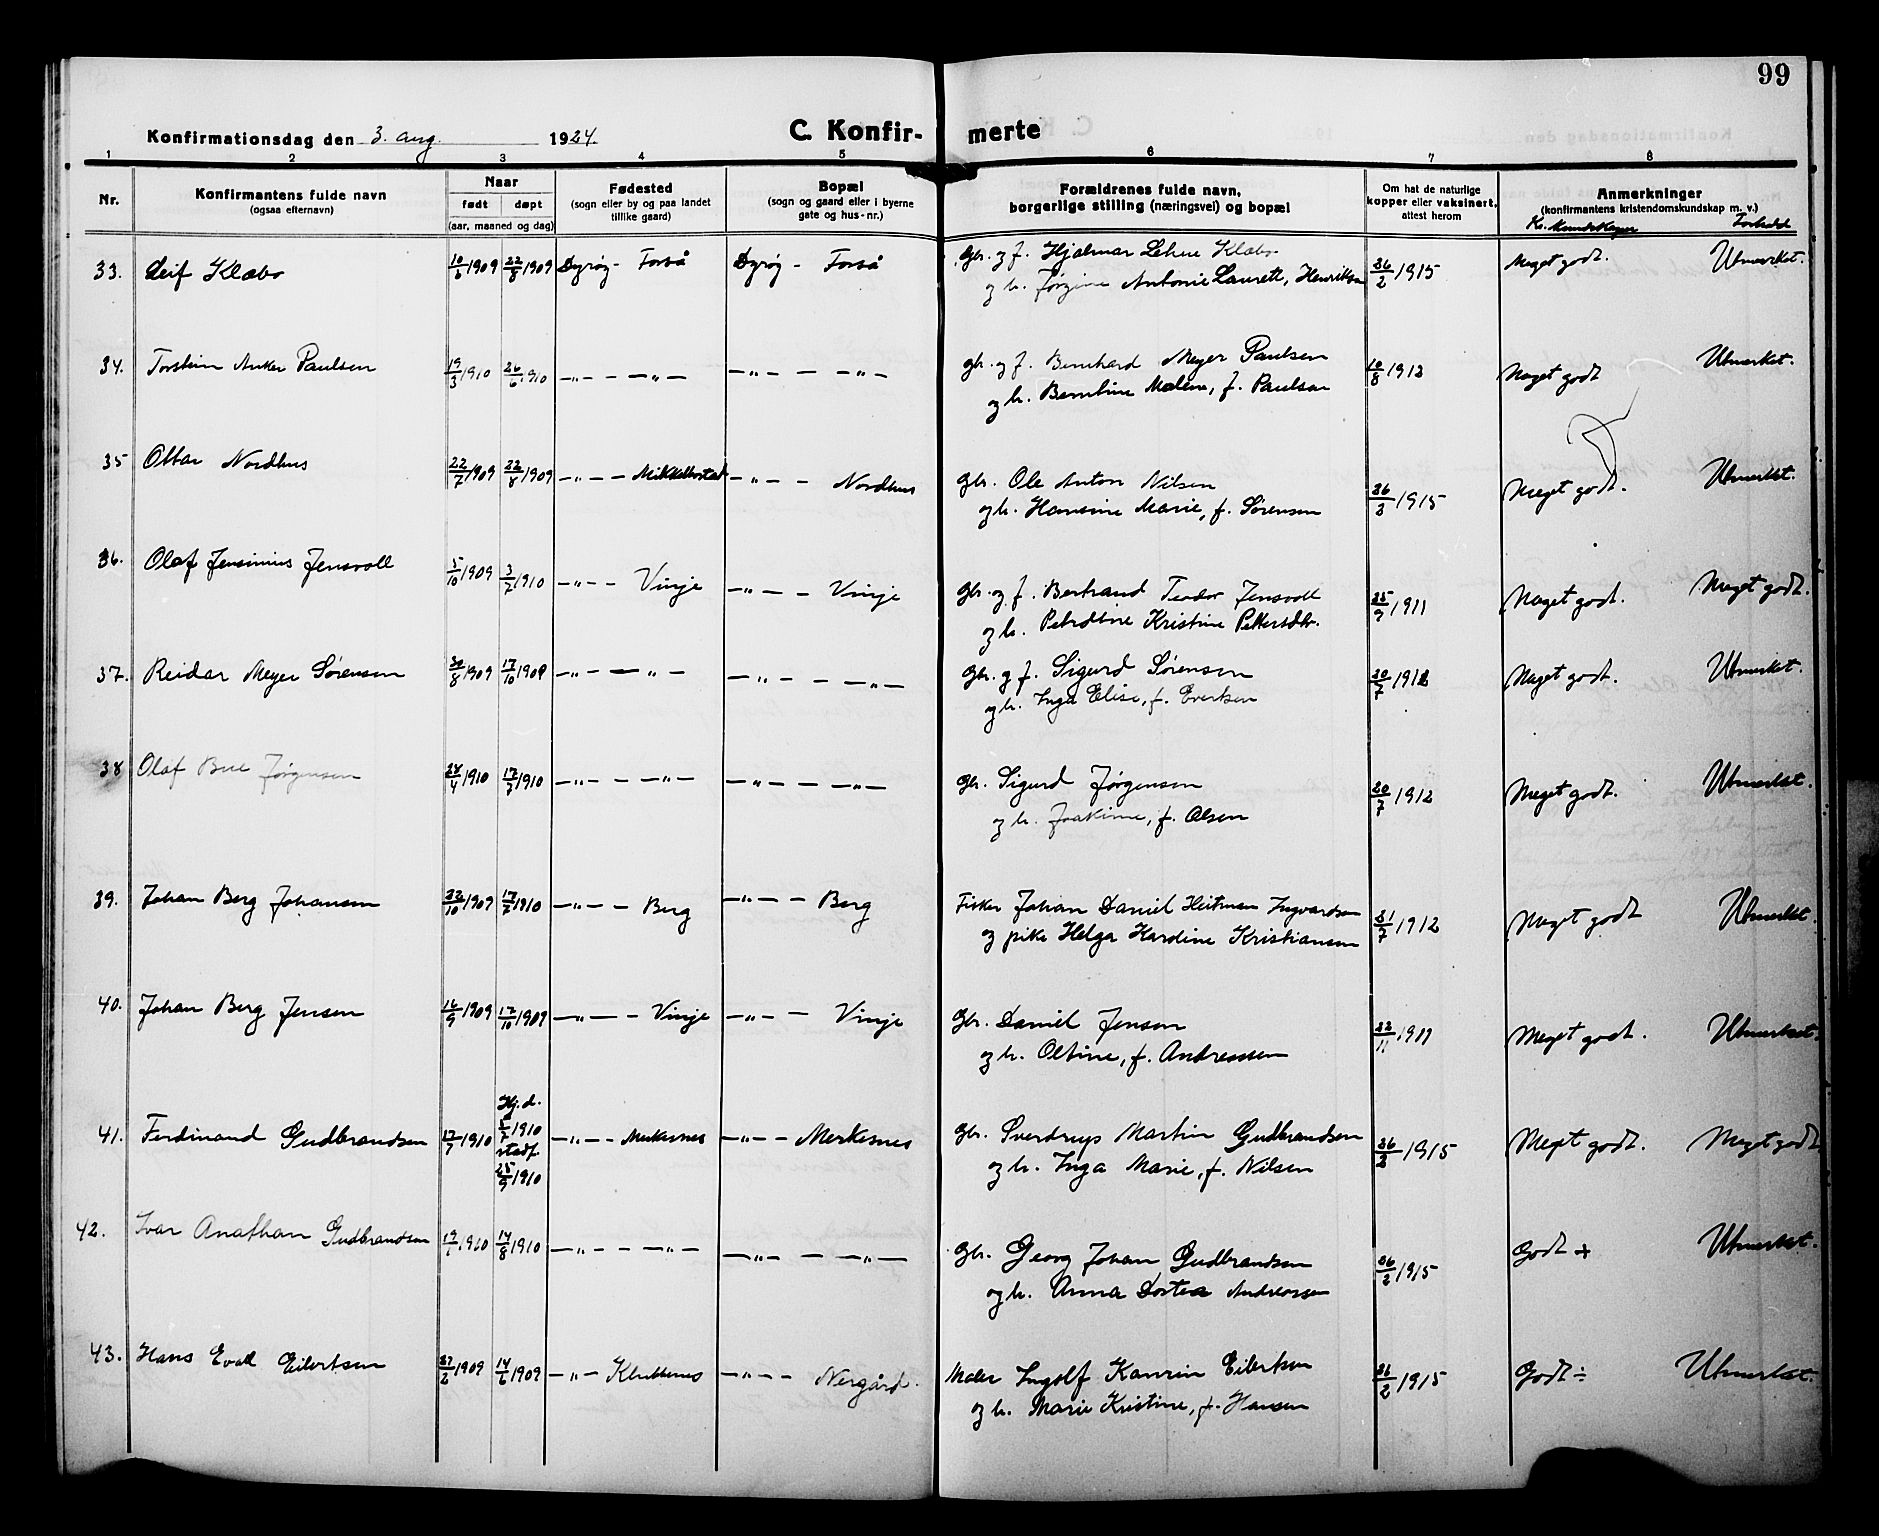 99
Konfirmationsdag den 3. aug. 1924.
C. Konfir- merte
1 2 3 4 5 6 7 8
Nr.
Konfirmantens fulde navn
(ogsaa efternavn)
Naar
født døpt
(aar, maaned og dag)
Fødested
(sogn eller by og paa landet
tillike gaard)
Bopæl
(sogn og gaard eller i byerne
gate og hus-nr.)
Forældrenes fulde navn,
borgerlige stilling (næringsvei) og bopæl
Om hat de naturlige
kopper eller vaksinert,
attest herom
Anmerkninger
(konfirmantens kristendomskundskap m. v.)
Kr. kundskaper Forhold
33. Leif Klæbo 10/6 1909 22/8 1909 Dyrøy - Forså Dyrøy - Forså Gbr. og f. Hjalmar Lehne Klæbo 26/2 1915 Meget godt. Utmerket.
og h. Jørgine Antonie Laurett, Henriksen
34. Torstein Anker Paulsen 19/3 1910 26/6 1910 —„— — —„— —„— — —„— Gbr. og f. Bernhard Meyer Paulsen 10/8 1912 Meget godt Utmerket.
og h. Berntine Malene, f. Paulsen
35 Ottar Nordhus 22/7 1909 22/8 1909 —„— — Mikkelbostad —„— — Nordhus Gbr. Ole Anton Nilsen 26/2 1915 Meget godt. Utmerket.
og h. Hansine Marie, f. Sørensen
36. Olaf Jensinius Jensvoll 5/10 1909 3/7 1910 —„— — Vinje —„— — Vinje Gbr. og f. Bertrand Teodor Jensvoll 25/7 1911 Meget godt. Meget godt.
og h. Petrdtine Kristine Pettersdtr.
37. Reidar Meyer Sørensen 30/8 1909 17/10 1909 —„— — „ — —„— — —„— Gbr. og f. Sigurd Sørensen 20/7 1912 Meget godt. Utmerket.
og h. Inga Elise, f. Evertsen
38 Olaf Bue Jørgensen 28/4 1910 17/7 1910 —„— — —„— —„— — —„— Gbr. Sigurd Jørgensen 20/7 1912 Meget godt. Utmerket.
og h. Joakime, f. Olsen
39. Johan Berg Johansen 22/10 1909 17/7 1910 —„— — Berg —„— — Berg Fisker Johan Daniel Heitman Ingvardsen 31/7 1912 Meget godt Utmerket.
og pike Helga Hardine Kristiansen
40. Johan Berg Jensen 16/9 1909 17/10 1909 —„— — Vinje —„— — Vinje Gbr. Daniel Jensen 22/11 1911 Meget godt. Utmerket.
og h. Oltine, f. Andreassen
41. Ferdinand Gudbrandsen 17/7 1910 Hj.d. /7 1910 stadf 25/9 1910 —„— — Merkesnes —„— — Merkesnes Gbr. Sverdrup Martin Gudbrandsen 26/2 1915 Meget godt. Meget godt
og h. Inga Marie, f. Nilsen
42. Ivar Anathan Gudbrandsen 19/1 1910 14/8 1910 —„— — —„— —„— — —„— Gbr. Georg Johan Gudbrandsen 26/2 1915 Godt + Utmerket.
og h. Anna Dortea Andreassen
43. Hans Evald Eilertsen 27/2 1909 14/6 1909 —„— Klubbenes —„— — Nergård. Maler Ingolf Kanrin Eilertsen 26/2 1915 Godt ÷ Utmerket.
og h. Marie Kristine, f. Hansen